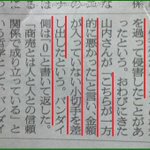 を過って侵害したことがあ
ったという。おわびに行き
山内さんが「こちらが一方
的に悪かった」と言い、金額
が入っていない小切手を差
し出したという。バンダイ
側は「0」と書いて返した。
商売とは人と人との信頼
関係で成り立っている」と